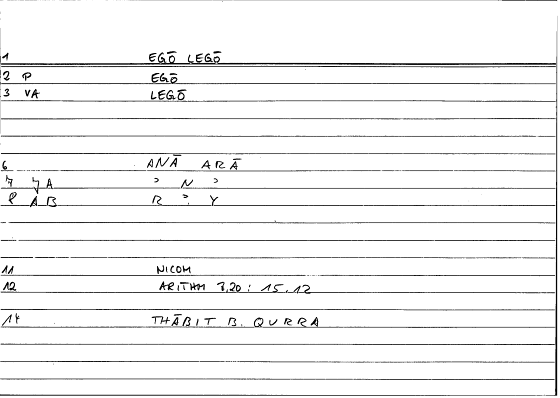 1 EGŌ LEGŌ
2 P EGŌ
3 VA LEGŌ
6 ANĀ ARĀ
7 A ʾ N ʾ
8 AB R ʾ. Y
11 NICOM
12 ARITHM 8,20 : 15.12
14 THĀBIT B. QURRA